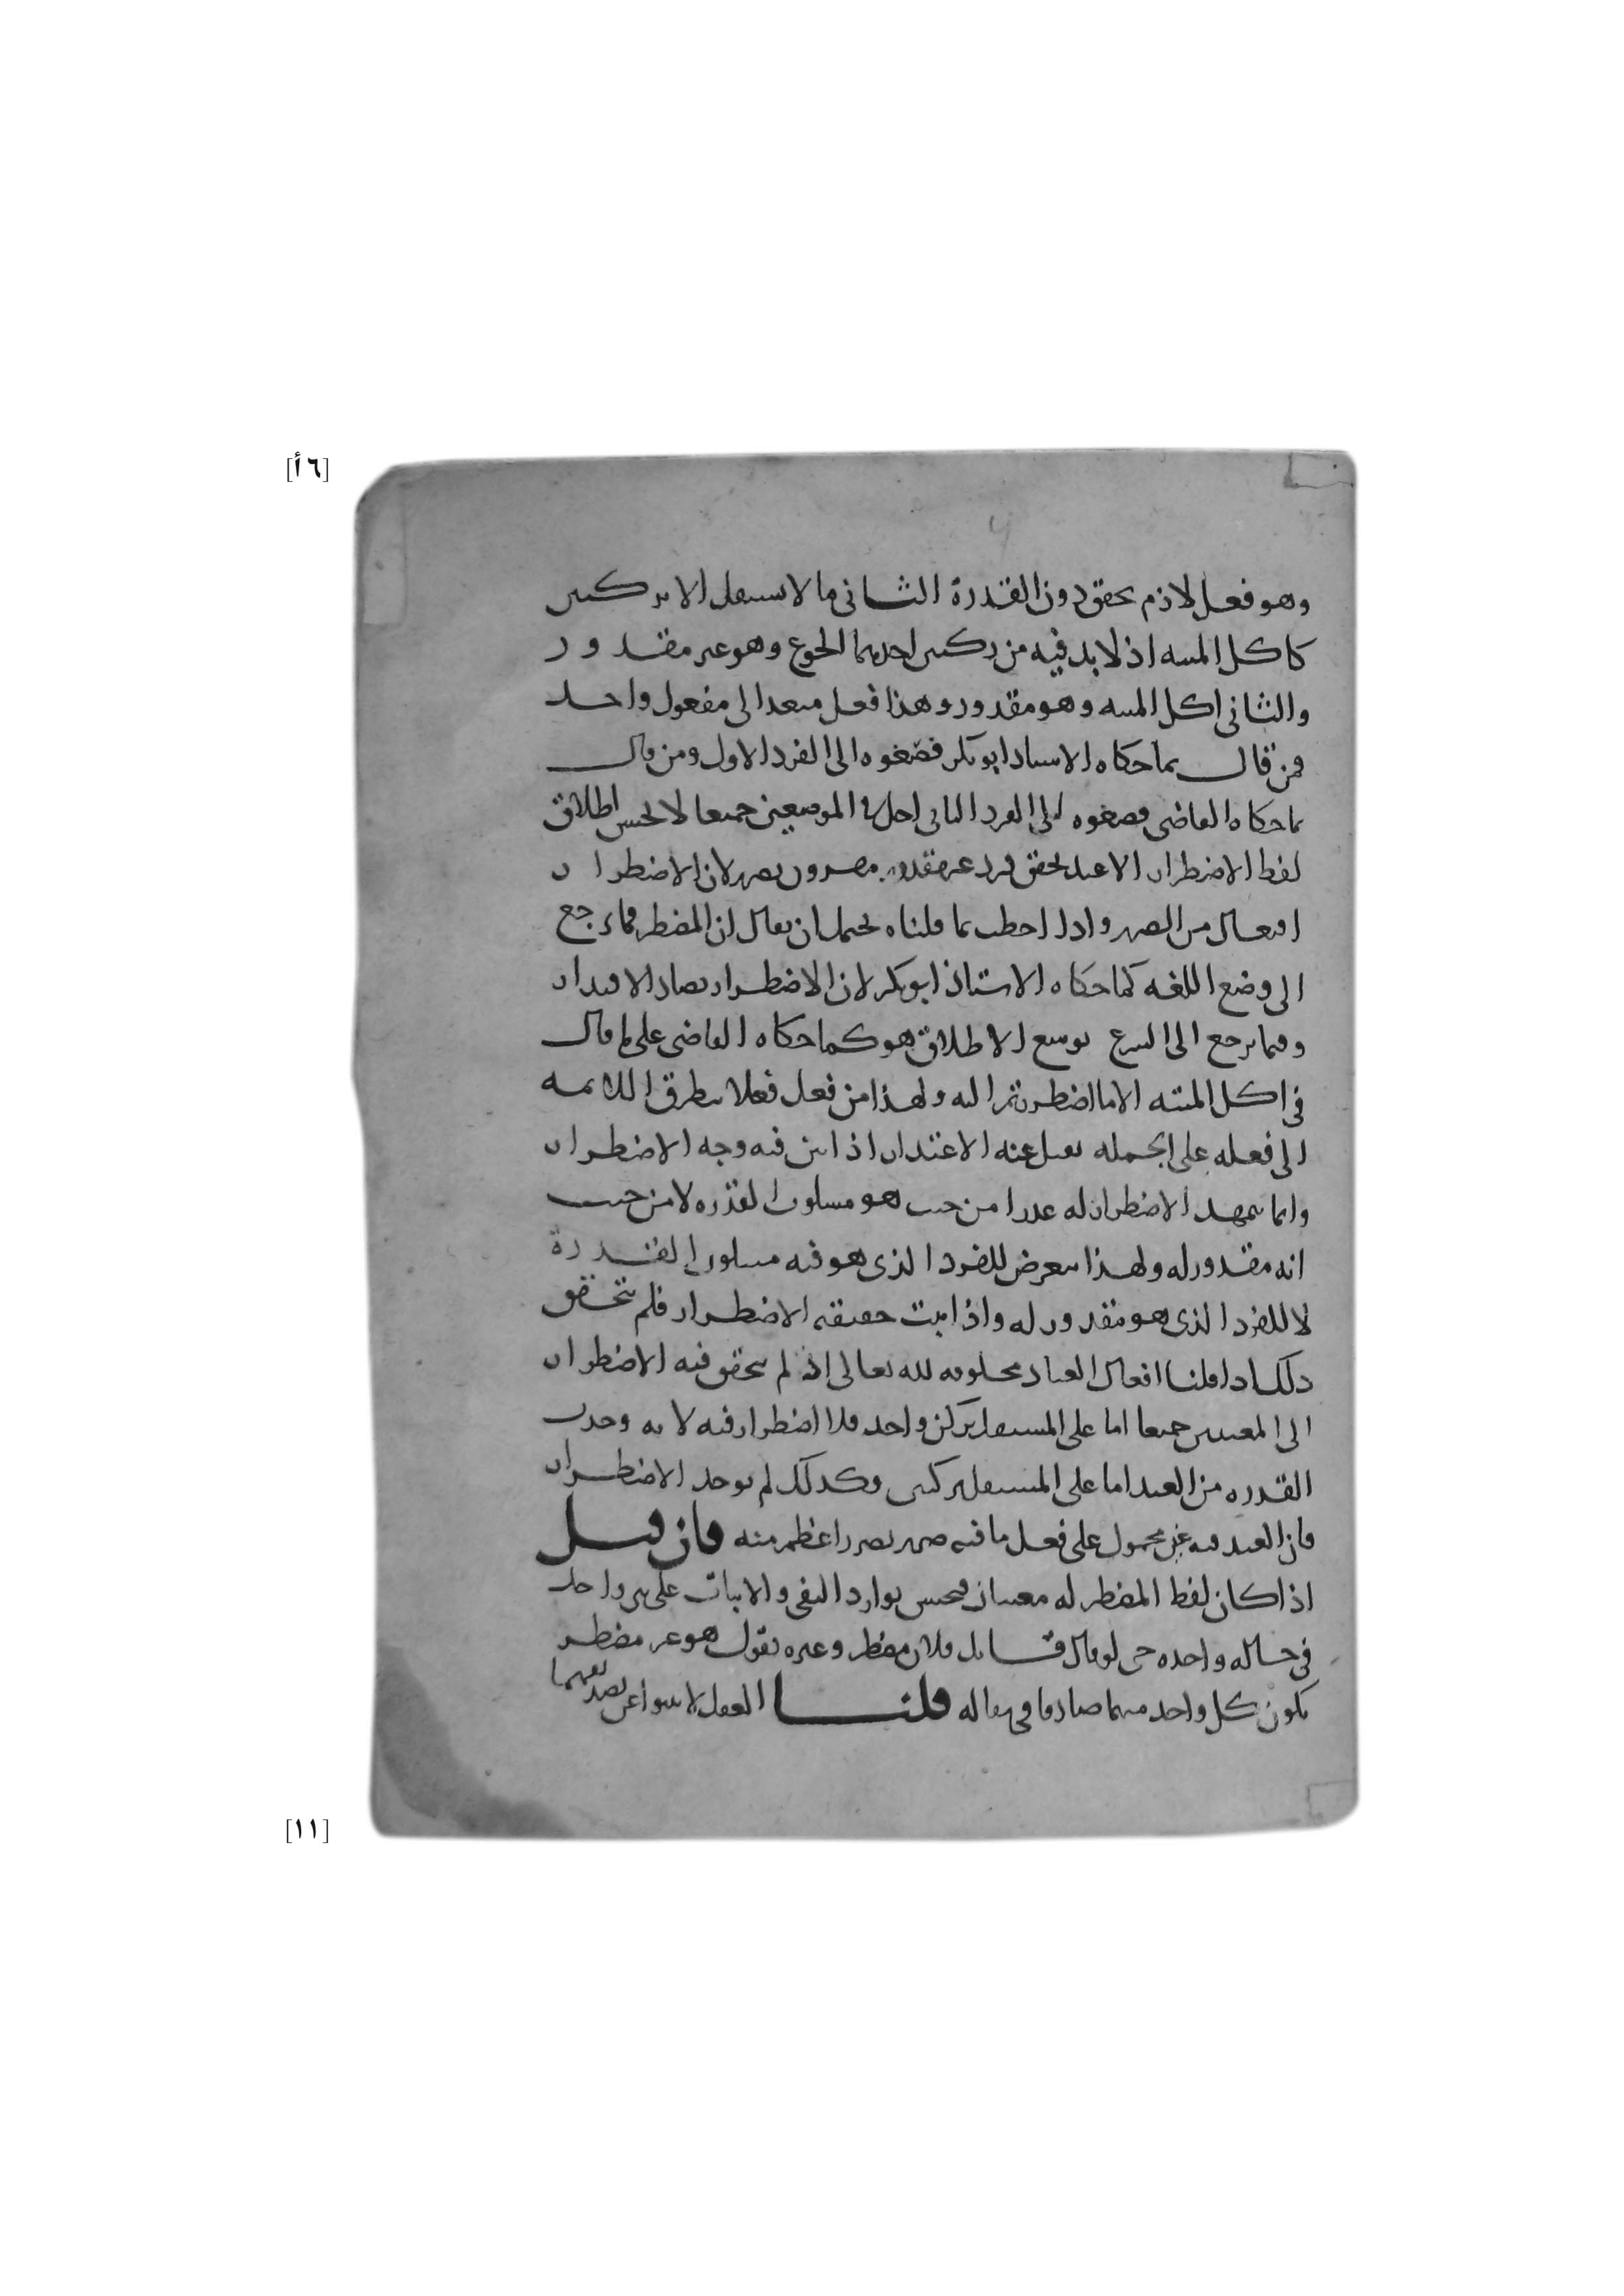 [٦أ]
وهو فعل لازم يتحقق دون القدرة الثاني ما لا يستقل الا بركنين
كاكل الميته اذ لا بد فيه من ركنين احدهما الجوع وهو غير مقدور
والثاني اكل الميته وهو مقدور وهذا فعل متعد الى مفعول واحد
فمن قال بما حكاه الاستاد ابو بكر فصغوه الى الفرد الاول ومن قال
بما حكاه القاضي فصغوه الى الفرد الثاني في الموضعين جميعا لا يحسن اطلاق
لفظ الاضطرار الا عند تحقق فرد غير مقدور لان الاضطرار
افتعال من الضر واذا احطت بما قلناه يحتمل ان يقال ان المضطر فما رجع
الى وضع اللغه كما حكاه الاستاذ ابو بكر لان الاضطرار يضاد الاقتدار
وفيما يرجع الى الشرع توسع الاطلاق هو كما حكاه القاضي على ما قال
في اكل الميته الا ما اضطررتم اليه ولهذا من فعل فعلا يتطرق اللائمه
الى فعله على الجمله يقبل عنه الاعتذار اذا بين فيه وجه الاضطرار
وانما يمهد الاضطرار له عذرا من حيث هو مسلوب القدره لا من حيث
انه مقدور له ولهذا يتعرض للفرد الذي هو فيه مسلوب القدرة
لا للفرد الذي هو مقدور له واذا ثبت حقيقه الاضطرار فلم يتحقق
ذلك اذا قلنا افعال العباد مخلوقه لله تعالى اذ لم يتحقق فيه الاضطرار
الى المعنيين جميعا اما على المستقل بركن واحد فلا اضطرار فيه لانه وجدت
القدره من العبد اما على المستقل بركنين وكذلك لم يوجد الاضطرار
فان العبد فيه غير محمول على فعل ما فيه ضرر بضرر اعظم منه فان قيل
اذا كان لفظ المضطر له معنيان فيحسن توارد النفي والاثبات على شي واحد
في حاله واحده حتى لو قال قائل فلان مضطر وغيره يقول هو غير مضطر
يكون كل واحد منهما صادقا في مقاله قلنا العقل لا
[١١]